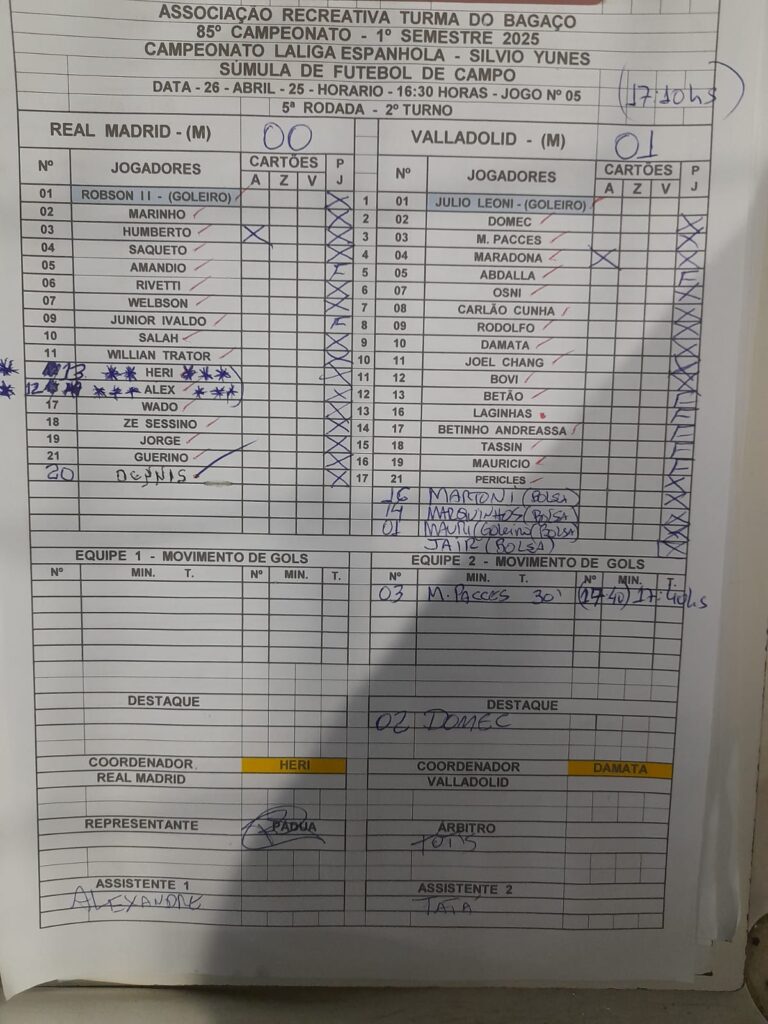 ASSOCIAÇÃO RECREATIVA TURMA DO BAGAÇO
85º CAMPEONATO - 1º SEMESTRE 2025
CAMPEONATO LALIGA ESPANHOLA - SILVIO YUNES
SÚMULA DE FUTEBOL DE CAMPO
DATA - 26 - ABRIL - 25 - HORARIO - 16:30 HORAS - JOGO Nº 05 (17:10hs)
5ª RODADA - 2º TURNO
REAL MADRID - (M) 00 VALLADOLID - (M) 01
Nº JOGADORES CARTÕES P J Nº JOGADORES CARTÕES P J
A Z V A Z V
01 ROBSON II - (GOLEIRO) X 1 01 JULIO LEONI - (GOLEIRO)
02 MARINHO X 2 02 DOMEC X
03 HUMBERTO X X 3 03 M. PACCES X
04 SAQUETO X 4 04 MARADONA X
05 AMANDIO F 5 05 ABDALLA F
06 RIVETTI X 6 07 OSNI X
07 WELBSON X 7 08 CARLÃO CUNHA X
09 JUNIOR IVALDO F 8 09 RODOLFO X
10 SALAH X 9 10 DAMATA X
11 WILLIAN TRATOR X 10 11 JOEL CHANG X
* 13 ** HERI *** X 11 12 BOVI X
* 12 *** ALEX *** X 12 13 BETÃO F
17 WADO X 13 16 LAGINHAS F
18 ZE SESSINO X 14 17 BETINHO ANDREASSA
19 JORGE X 15 18 TASSIN
21 GUERINO X 16 19 MAURICIO F
20 DENNIS X 17 21 PERICLES X
16 MARTONI (BOLSA)
14 MARQUINHOS (BOLSA)
01 MAURI (Goleiro) (BOLSA)
JAIR (BOLSA) X
EQUIPE 1 - MOVIMENTO DE GOLS EQUIPE 2 - MOVIMENTO DE GOLS
Nº MIN. T. Nº MIN. T. Nº MIN. T. Nº MIN. T.
03 M. PACCES 30' 17:40hs
DESTAQUE DESTAQUE
02 DOMEC
COORDENADOR HERI COORDENADOR DAMATA
REAL MADRID VALLADOLID
REPRESENTANTE PÁDUA ÁRBITRO
ASSISTENTE 1 ASSISTENTE 2
ALEXANDRE TATÁ